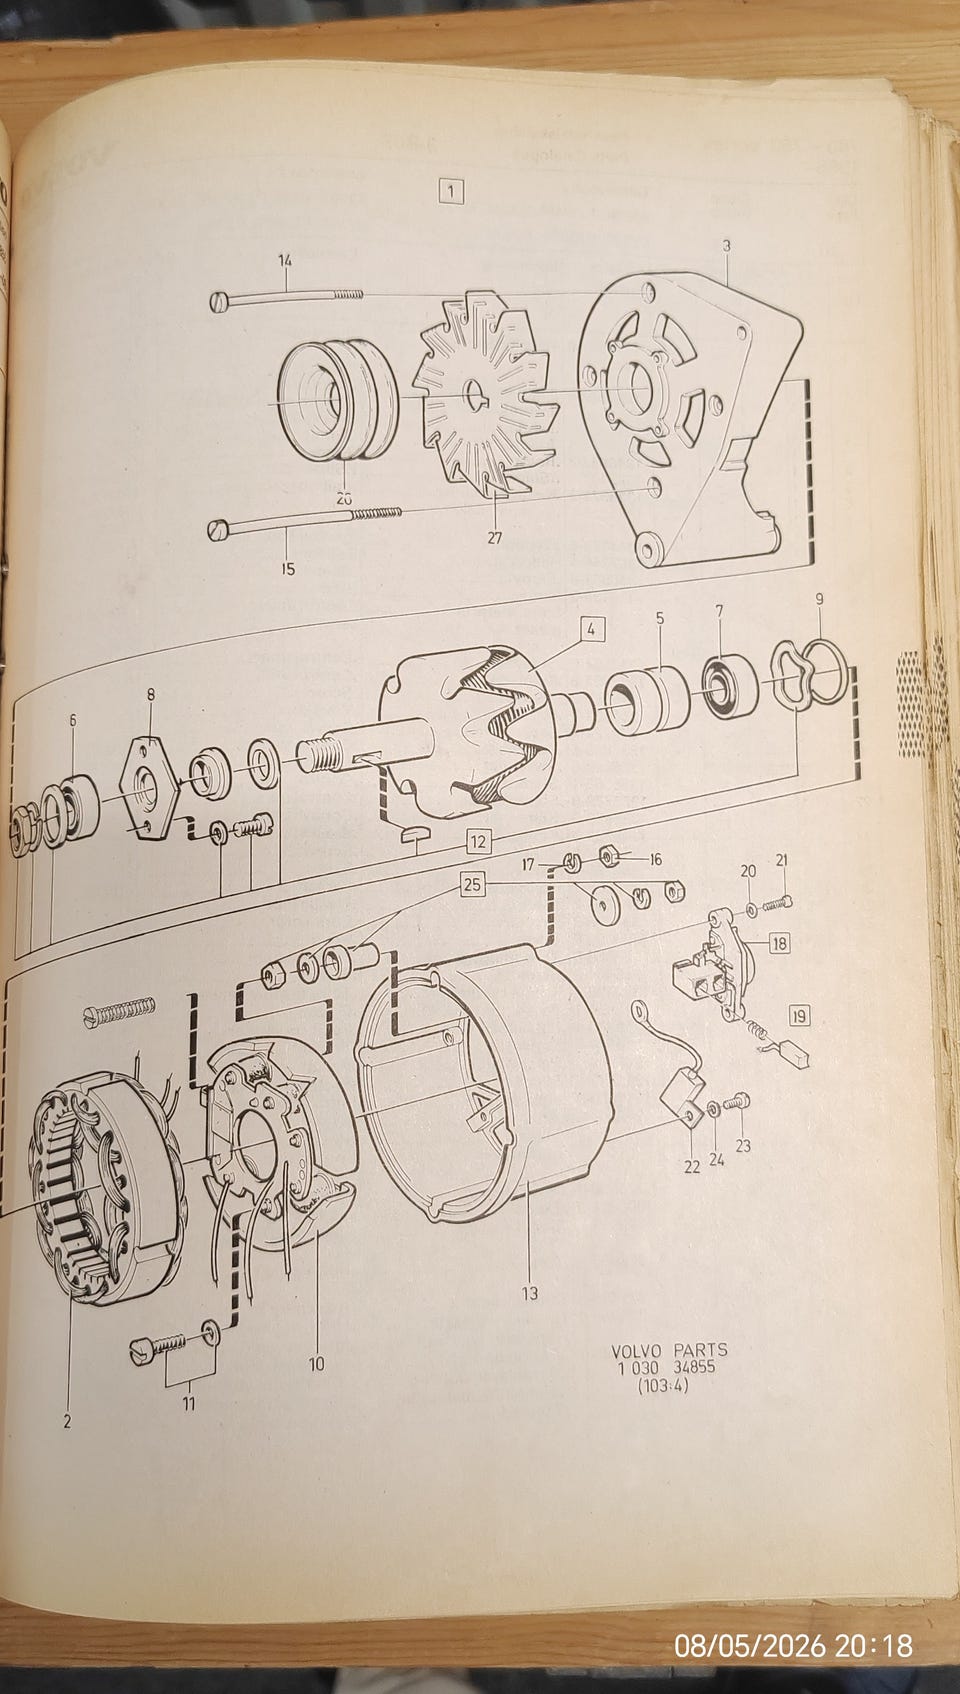 1
14
3
26
27
15
4
5
7
9
6
8
12
17
16
25
20
21
18
19
22
24
23
13
10
11
2
VOLVO PARTS
1 030 34855
(103:4)
08/05/2026 20:18